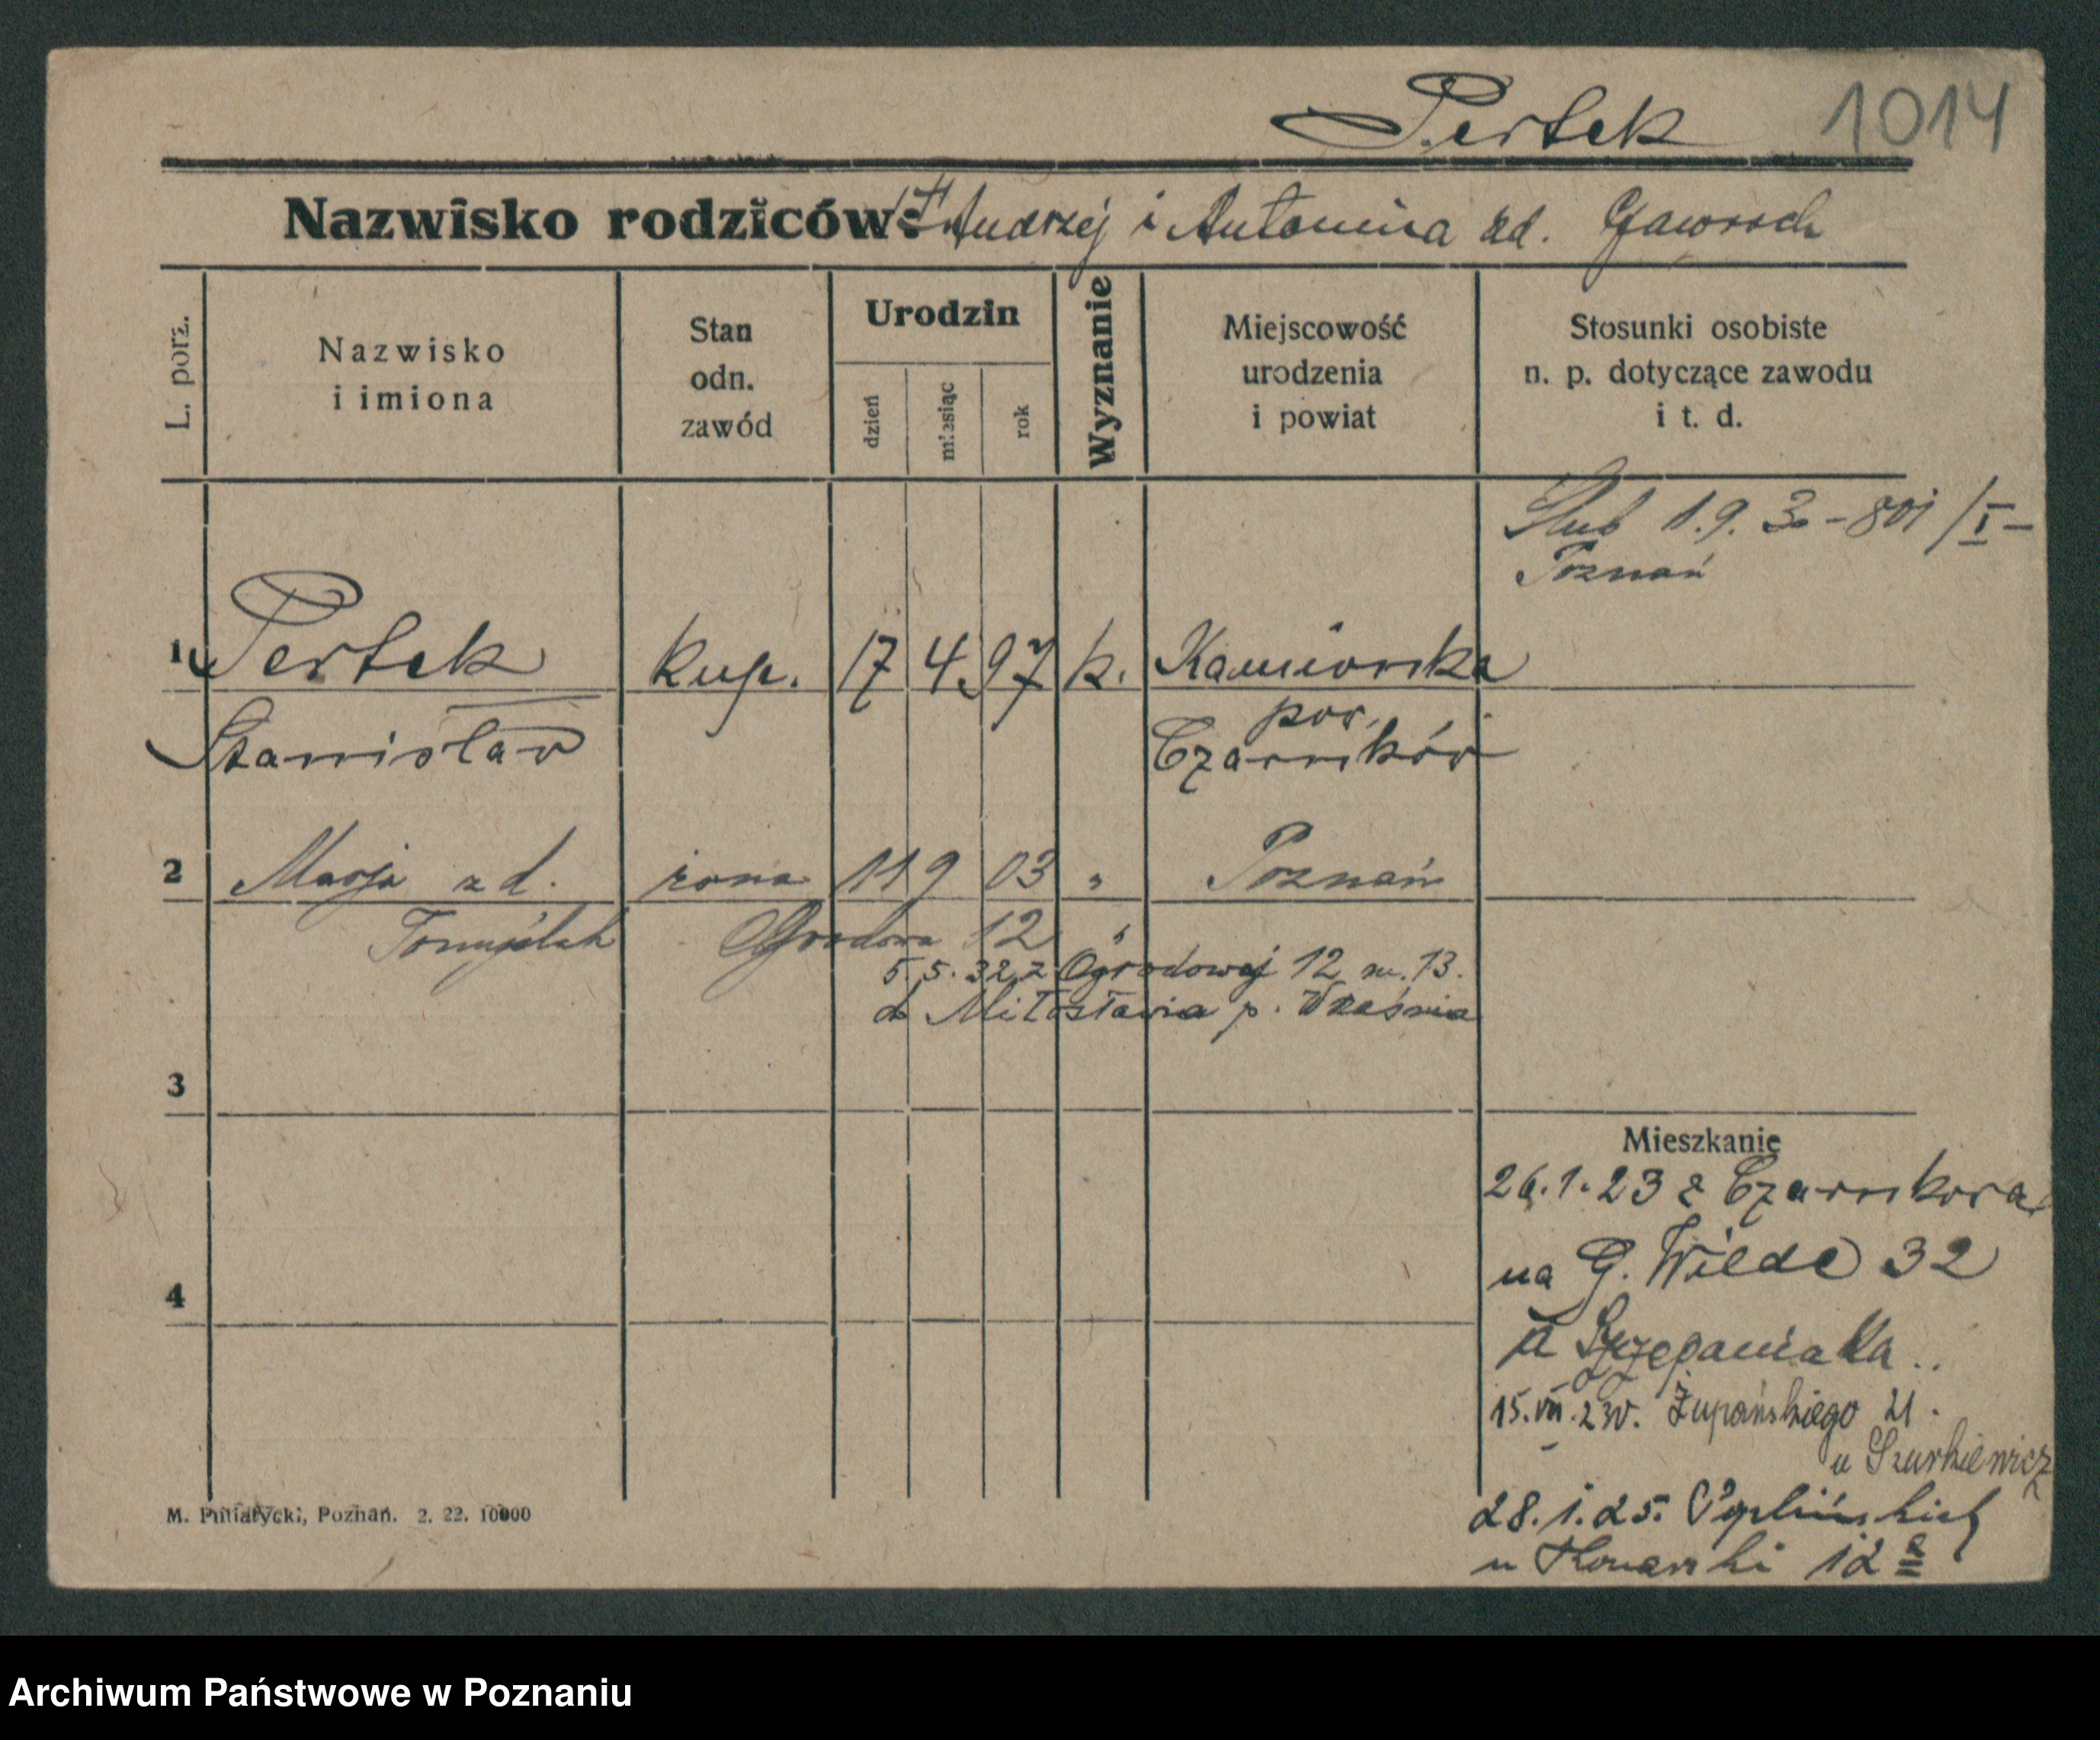 Pertek 1014
Nazwisko rodziców: Andrzej i Antonina zd. Gawroch
L. porz.
Nazwisko
i imiona
Stan
odn.
zawód
Urodzin
dzień
miesiąc
rok
Wyznanie
Miejscowość
urodzenia
i powiat
Stosunki osobiste
n. p. dotyczące zawodu
i t. d.
Ślub 1.9.30-801/I-
Poznań
1 Pertek kup. 17 4 97 k. Kamionka
Stanisław pow.
Czarnków
2 Marja zd. żona 11 9 03 " Poznań
Tomyślak Ogrodowa 12 "
5.5.32 z Ogrodowej 12 m. 13.
do Miłosławia p. Września
3
Mieszkanie
26.1.23 z Czarnkowa
na G. Wilde 32
4
u Szczepaniaka
15.VII.23 w. Żupańskiego 21.
u Szurkiewicz
28.1.25. Poplińskich
u Konarski 12a
M. Putiatycki, Poznań. 2. 22. 10000
Archiwum Państwowe w Poznaniu